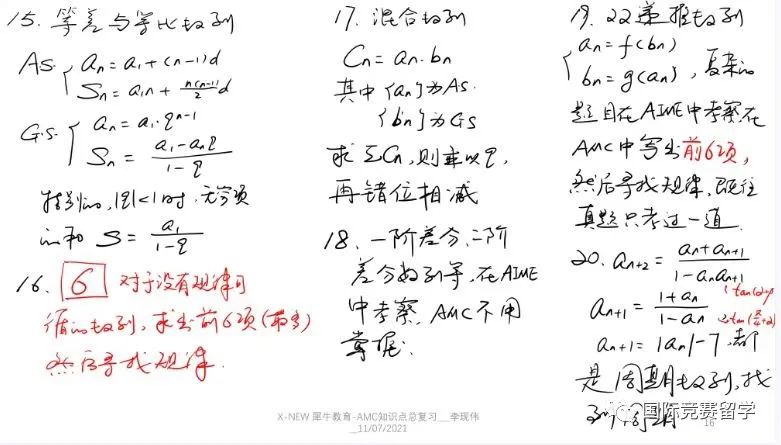 15. 等差与等比数列
A.S. { an = a1 + (n-1)d
Sn = a1n + n(n-1)/2 d
G.S. { an = a1·q^(n-1)
Sn = (a1 - anq)/(1-q)
特别的, |q|<1时, 无穷项
的和 S = a1/(1-q)
16. 6 对于没有规律可
循的数列, 求出前6项(最多)
然后寻找规律.
17. 混合数列
Cn = an·bn
其中{an}为AS.
{bn}为GS
求ΣCn, 则乘以q,
再错位相减
18. 一阶差分、二阶
差分数列等, 在AIME
中考察, AMC不用
掌握.
19. 双递推数列
{ an = f(bn)
bn = g(an) , 复杂的
题目在AIME中考察在
AMC中写出前6项,
然后寻找规律. 既往
真题只考过一道.
20. an+2 = (an + an+1)/(1 - an an+1)
tan(α+β)
an+1 = (1+an)/(1-an)
tan(π/4+α)
an+1 = |an| - 7, 都
是周期数列, 找
到周期
国际竞赛留学
X-NEW 犀牛教育-AMC知识点总复习__李现伟
_11/07/2021
16